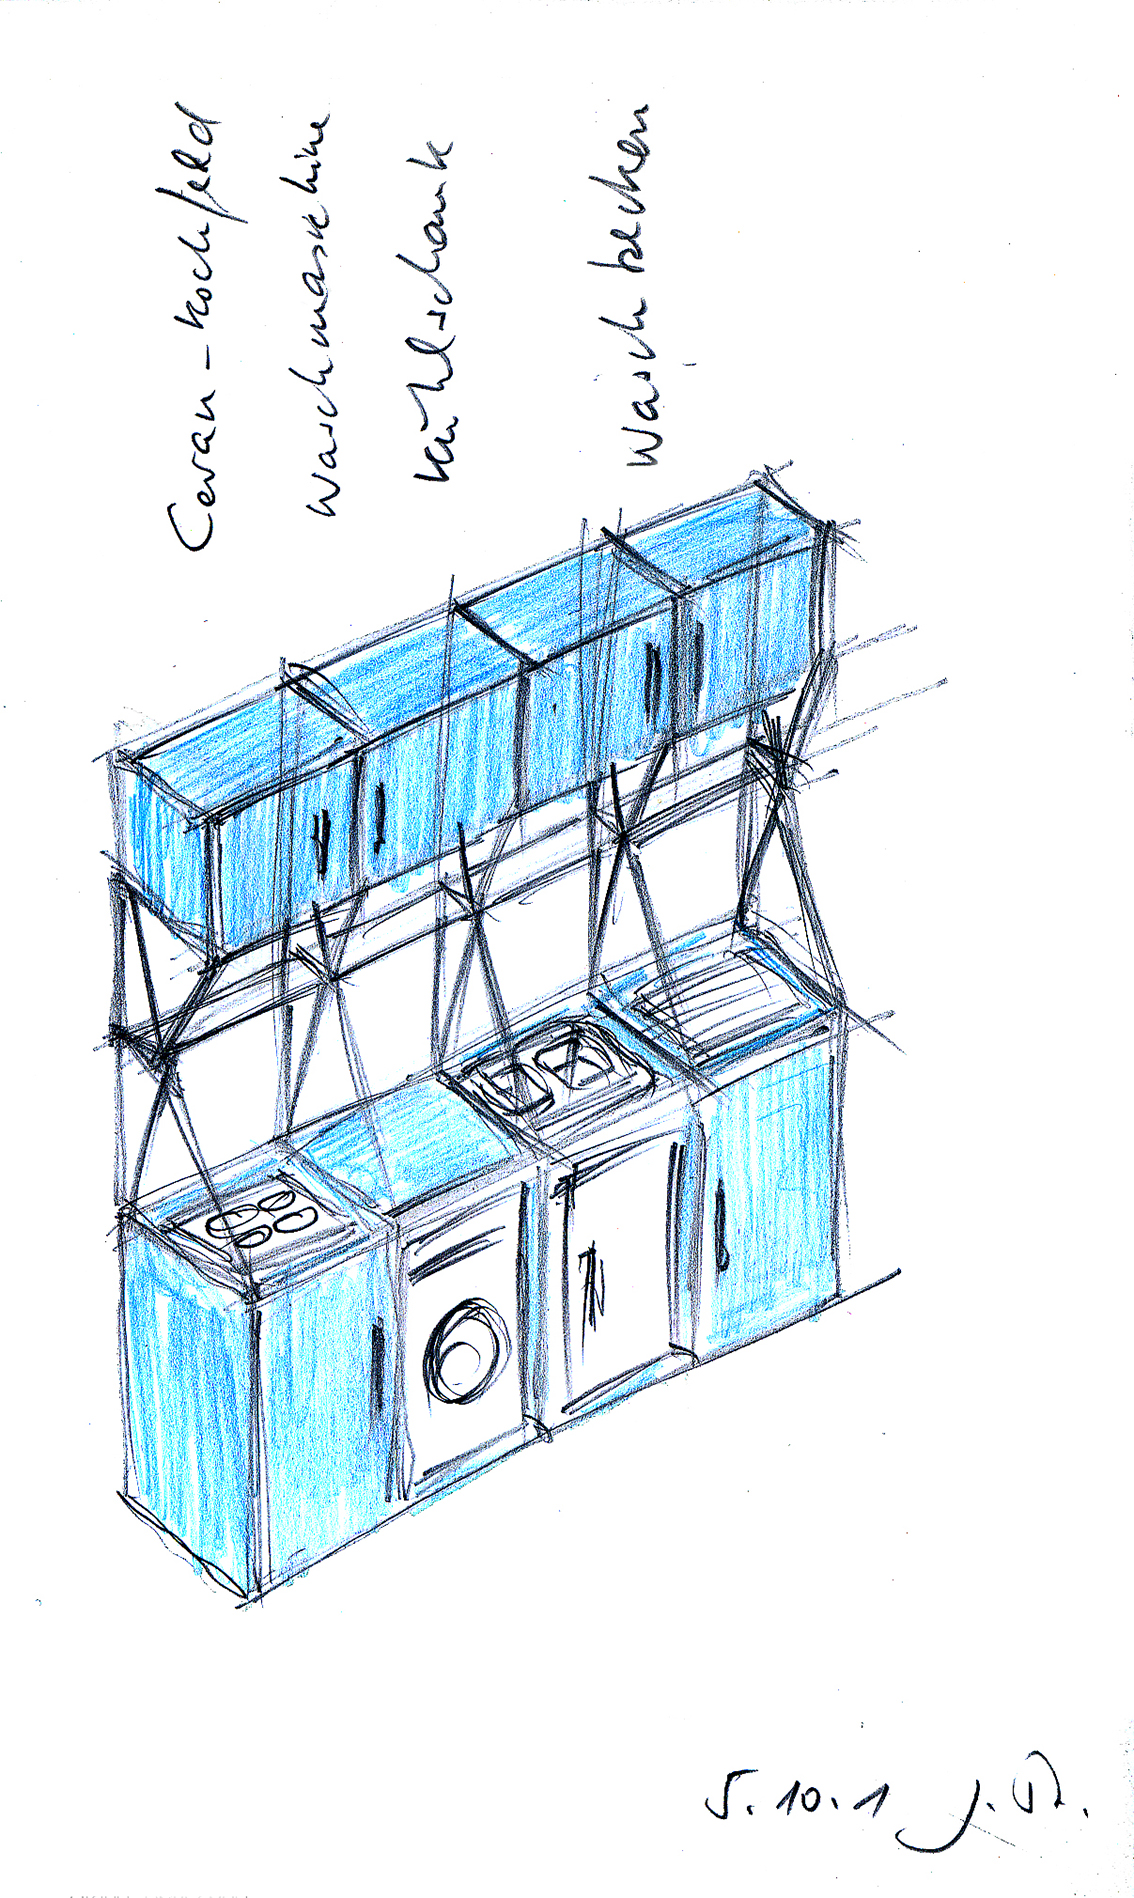 Ceran-Kochfeld
Waschmaschine
Kühlschank
Waschbecken
5.10.1 J.